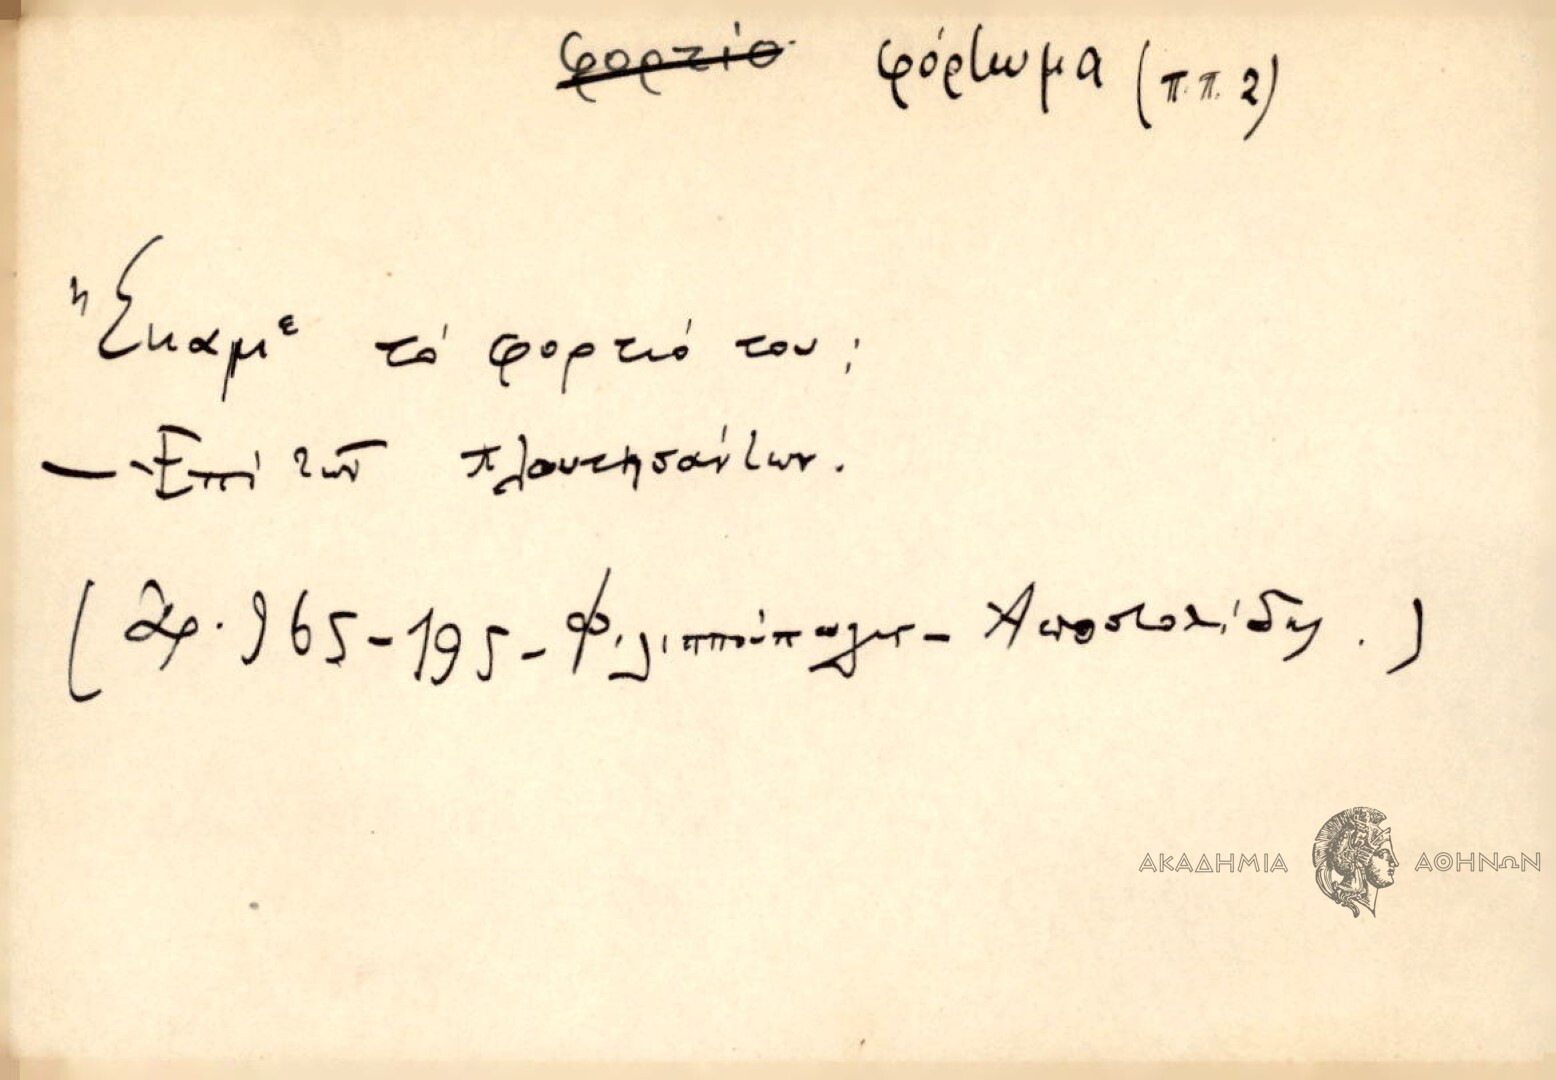 φορτίο φόρτωμα (π.π. 2)
Ἔκαμε τό φορτιό του;
— Ἐπί τῶν πλουτησάντων.
(Ἀρ. 965-195- Φιλιππούπολις - Ἀποστολίδης.)
ΑΚΑΔΗΜΙΑ ΑΘΗΝΩΝ